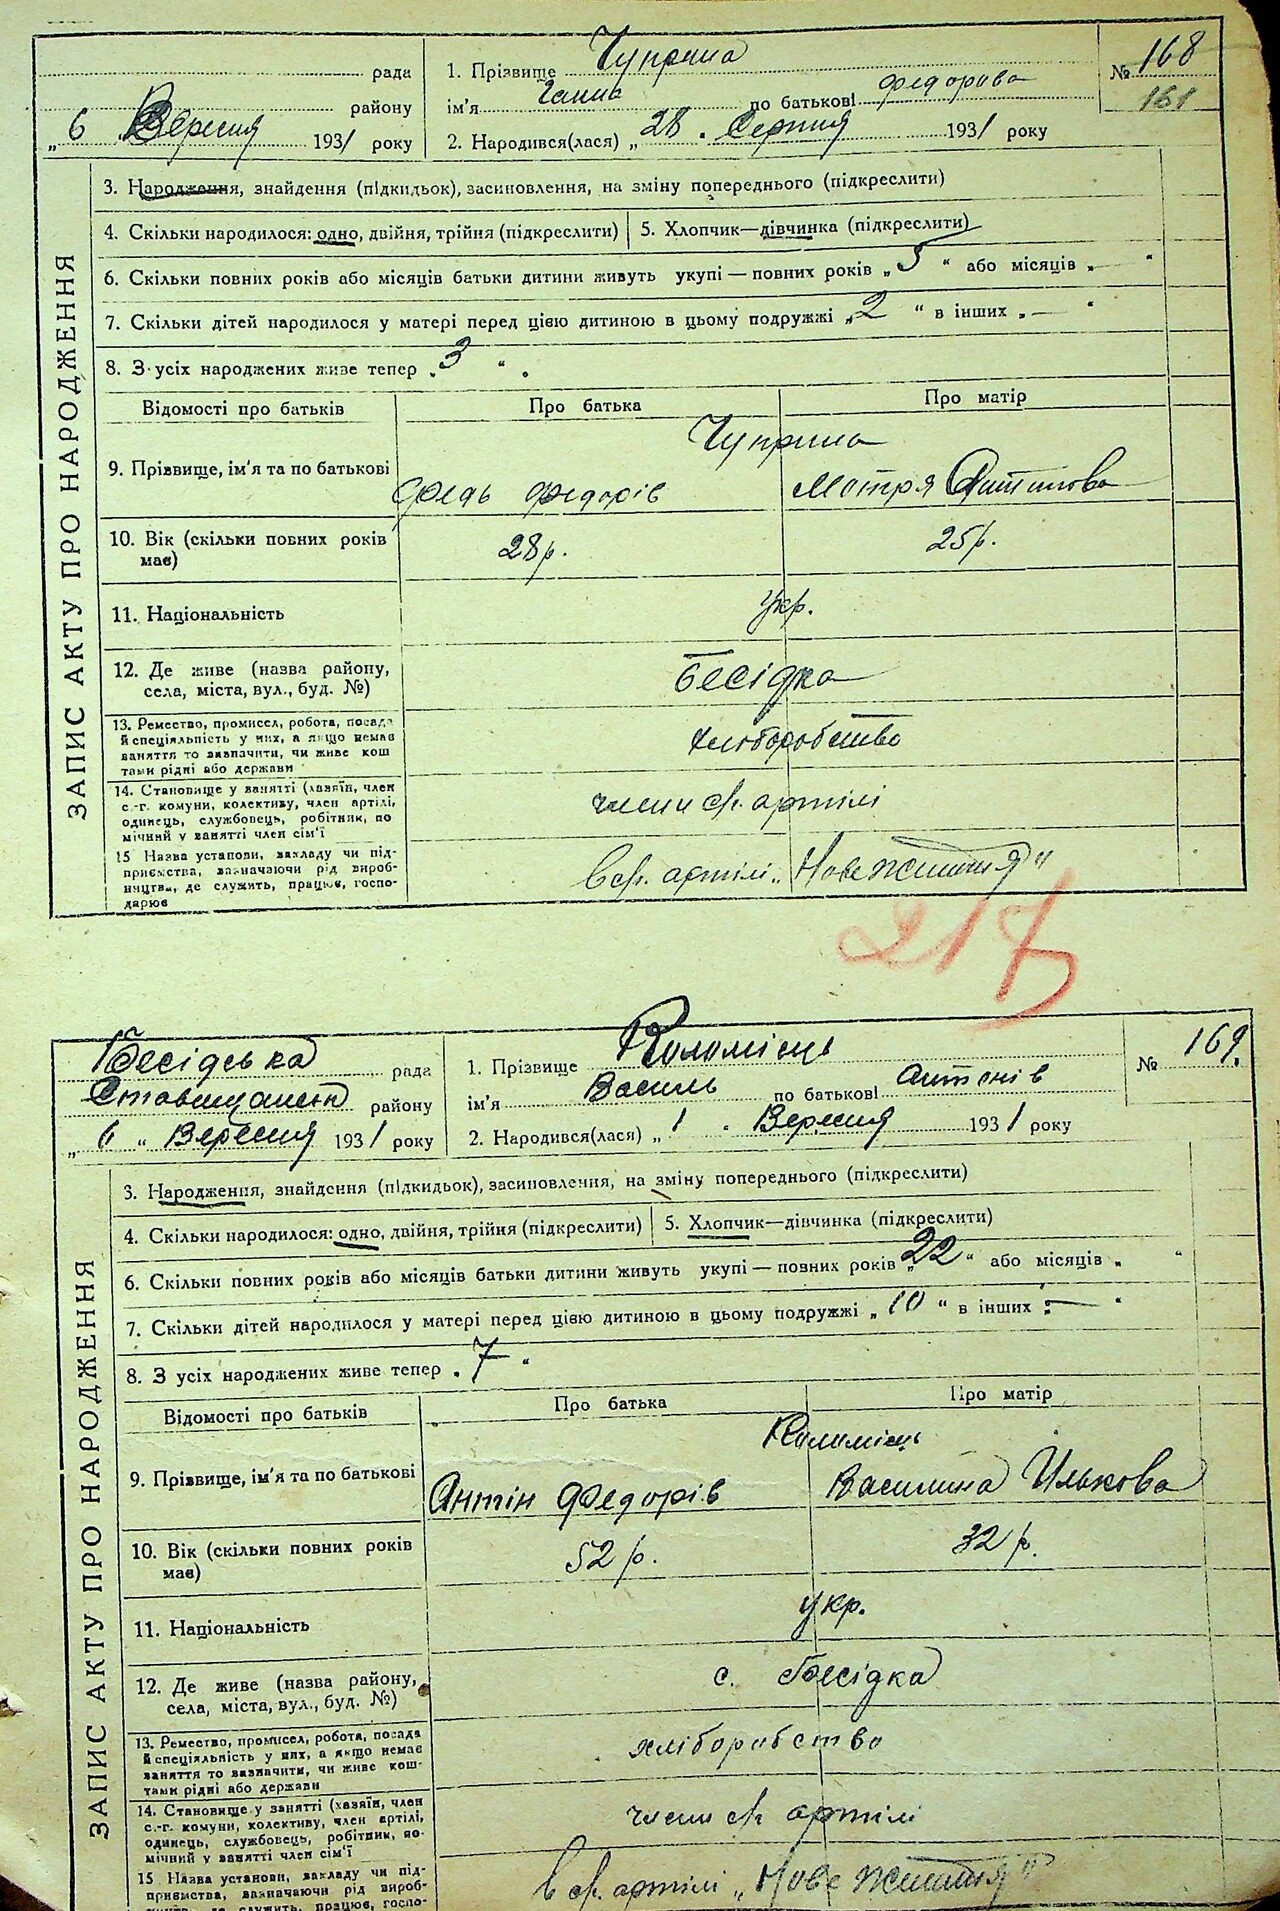 рада
району
„6 Вересня 1931 року
1. Прізвище Чуприна
ім'я Ганна по батькові Федорова
2. Народився(лася) „28 „ Серпня 1931 року
№ 168
161
ЗАПИС АКТУ ПРО НАРОДЖЕННЯ
3. Народження, знайдення (підкидьок), засиновлення, на зміну попереднього (підкреслити)
4. Скільки народилося: одно, двійня, трійня (підкреслити) 5. Хлопчик—дівчинка (підкреслити)
6. Скільки повних років або місяців батьки дитини живуть укупі — повних років „5“ або місяців „—“
7. Скільки дітей народилося у матері перед цією дитиною в цьому подружжі „2“ в інших „—“
8. З усіх народжених живе тепер „3“.
Відомості про батьків Про батька Про матір
Чуприна
9. Прізвище, ім'я та по батькові Федь Федорів Мотря
10. Вік (скільки повних років має) 28 р. 25 р.
11. Національність укр.
12. Де живе (назва району, Бесідка
села, міста, вул., буд. №)
13. Ремество, промисел, робота, посада хліборобство
й спеціяльність у них, а якщо немає
заняття то зазначити, чи живе кош
тами рідні або держави
14. Становище у занятті (хазяїн, член члени с/г. артілі
с.-г. комуни, колективу, член артілі,
одинець, службовець, робітник, по
мічний у занятті член сім'ї
15 Назва установи, закладу чи під- в с/г. артілі „Нове Життя“
приємства, зазначаючи рід вироб-
ництва, де служить, працює, госпо-
дарює
217
Бесідська рада
Ставищанськ району
„6“ Вересня 1931 року
1. Прізвище Коломієць
ім'я Василь по батькові Антонів
2. Народився(лася) „1 „ Вересня 1931 року
№ 169.
ЗАПИС АКТУ ПРО НАРОДЖЕННЯ
3. Народження, знайдення (підкидьок), засиновлення, на зміну попереднього (підкреслити)
4. Скільки народилося: одно, двійня, трійня (підкреслити) 5. Хлопчик—дівчинка (підкреслити)
6. Скільки повних років або місяців батьки дитини живуть укупі — повних років „22“ або місяців „ “
7. Скільки дітей народилося у матері перед цією дитиною в цьому подружжі „10“ в інших „—“
8. З усіх народжених живе тепер „7“
Відомості про батьків Про батька Про матір
Коломієць
9. Прізвище, ім'я та по батькові Антін Федорів Василина Илькова
10. Вік (скільки повних років має) 52 р. 32 р.
11. Національність укр.
12. Де живе (назва району, с. Бесідка
села, міста, вул., буд. №)
13. Ремество, промисел, робота, посада хліборобство
й спеціяльність у них, а якщо немає
заняття то зазначити, чи живе кош-
тами рідні або держави
14. Становище у занятті (хазяїн, член члени с/г артілі
с.-г. комуни, колективу, член артілі,
одинець, службовець, робітник, по-
мічний у занятті член сім'ї
15 Назва установи, закладу чи під- в с/г. артілі „Нове Життя“
приємства, зазначаючи рід вироб-
ництва, де служить, працює, госпо-